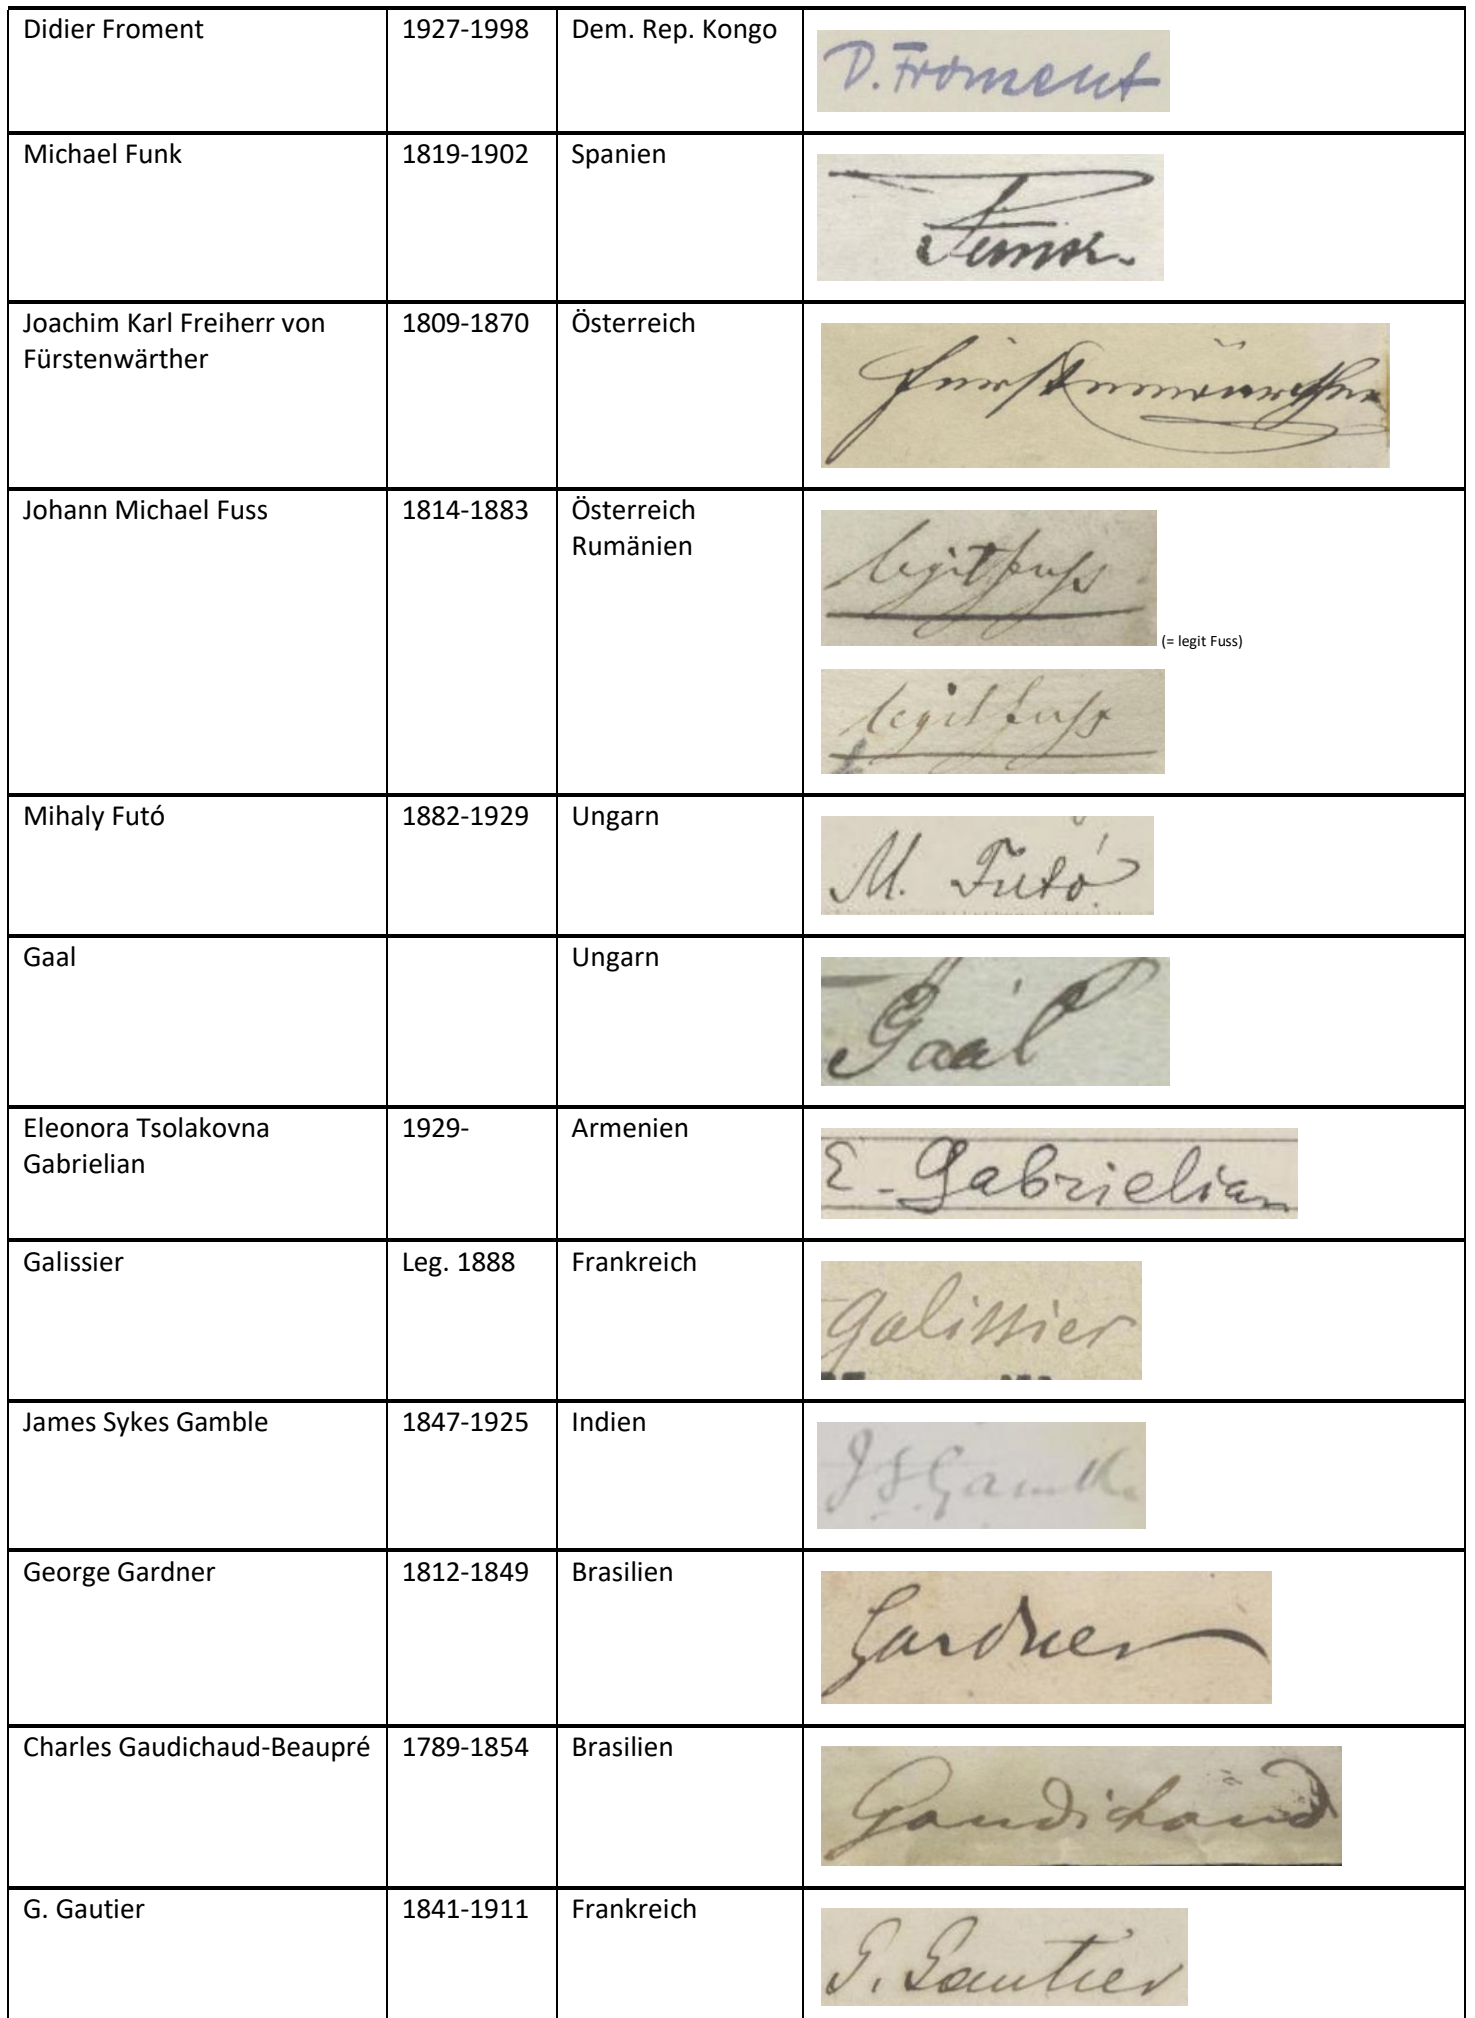 Didier Froment 1927-1998 Dem. Rep. Kongo D. Froment
Michael Funk 1819-1902 Spanien Funk.
Joachim Karl Freiherr von 1809-1870 Österreich Fürstenwärther
Fürstenwärther
Johann Michael Fuss 1814-1883 Österreich legit Fuss
Rumänien
(= legit Fuss)
legit Fuss
Mihaly Futó 1882-1929 Ungarn M. Futó
Gaal Ungarn Gaál
Eleonora Tsolakovna 1929- Armenien E. Gabrielian
Gabrielian
Galissier Leg. 1888 Frankreich Galissier
James Sykes Gamble 1847-1925 Indien JS Gamble
George Gardner 1812-1849 Brasilien Gardner
Charles Gaudichaud-Beaupré 1789-1854 Brasilien Gaudichaud
G. Gautier 1841-1911 Frankreich G. Gautier